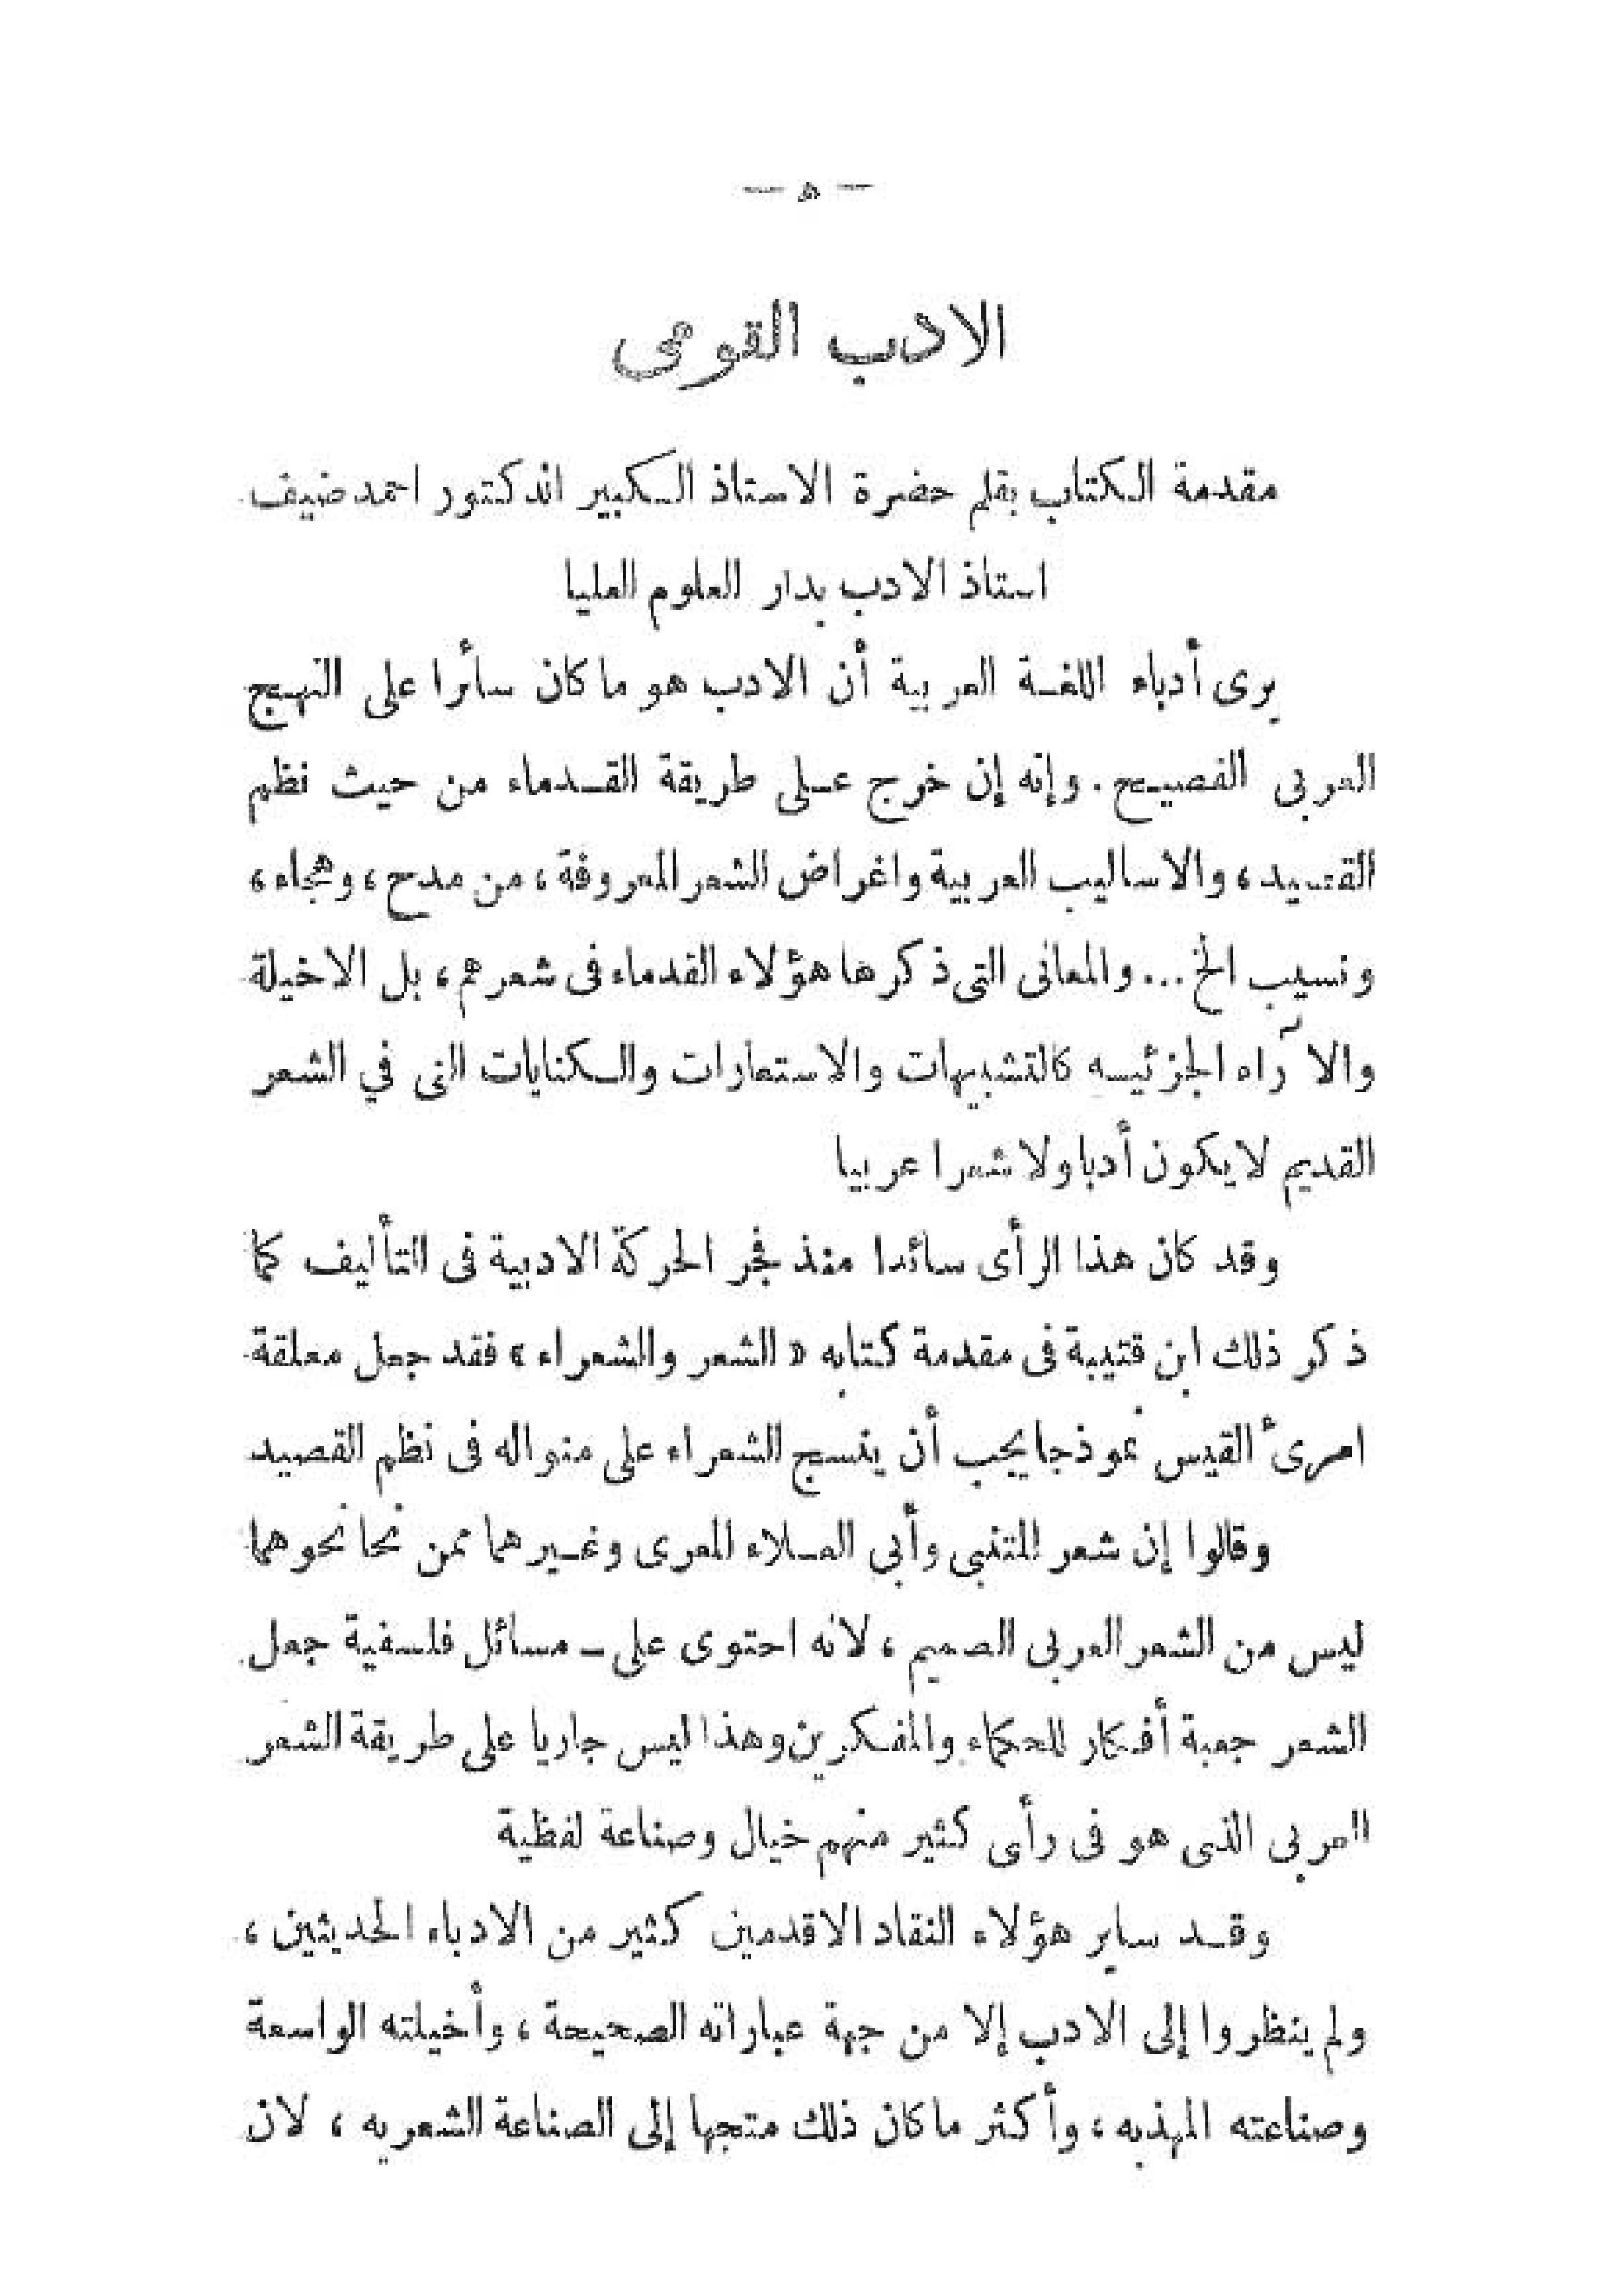 — ه —
الادب القومى
مقدمة الكتاب بقلم حضرة الاستاذ الكبير الدكتور احمد ضيف
استاذ الادب بدار العلوم العليا
يرى أدباء اللغة العربية أن الادب هو ما كان سائرا على النهج
العربى الفصيح . وإنه إن خرج على طريقة القدماء من حيث نظم
القصيد ، والاساليب العربية واغراض الشعر المعروفة ، من مدح ، وهجاء ،
ونسيب الخ ... والمعانى التى ذكرها هؤلاء القدماء فى شعرهم ، بل الاخيلة
والآراء الجزئيه كالتشبيهات والاستعارات والكنايات التى في الشعر
القديم لا يكون أدبا ولا شعرا عربيا
وقد كان هذا الرأى سائدا منذ فجر الحركة الادبية فى التأليف كما
ذكر ذلك ابن قتيبة فى مقدمة كتابه « الشعر والشعراء » فقد جعل معلقة
امرئ القيس نموذجا يجب أن ينسج الشعراء على منواله فى نظم القصيد
وقالوا إن شعر المتنبى وأبي العلاء المعرى وغيرهما ممن نحا نحوهما
ليس من الشعر العربى الصميم ، لانه احتوى على ـ مسائل فلسفية جعل
الشعر جعبة أفكار للحكماء والمفكرين وهذا ليس جاريا على طريقة الشعر
العربى الذى هو فى رأى كثير منهم خيال وصناعة لفظية
وقد ساير هؤلاء النقاد الاقدمين كثير من الادباء الحديثين ،
ولم ينظروا إلى الادب إلا من جهة عباراته الصحيحة ، وأخيلته الواسعة
وصناعته المهذبه ، وأكثر ما كان ذلك متجها إلى الصناعة الشعريه ، لان